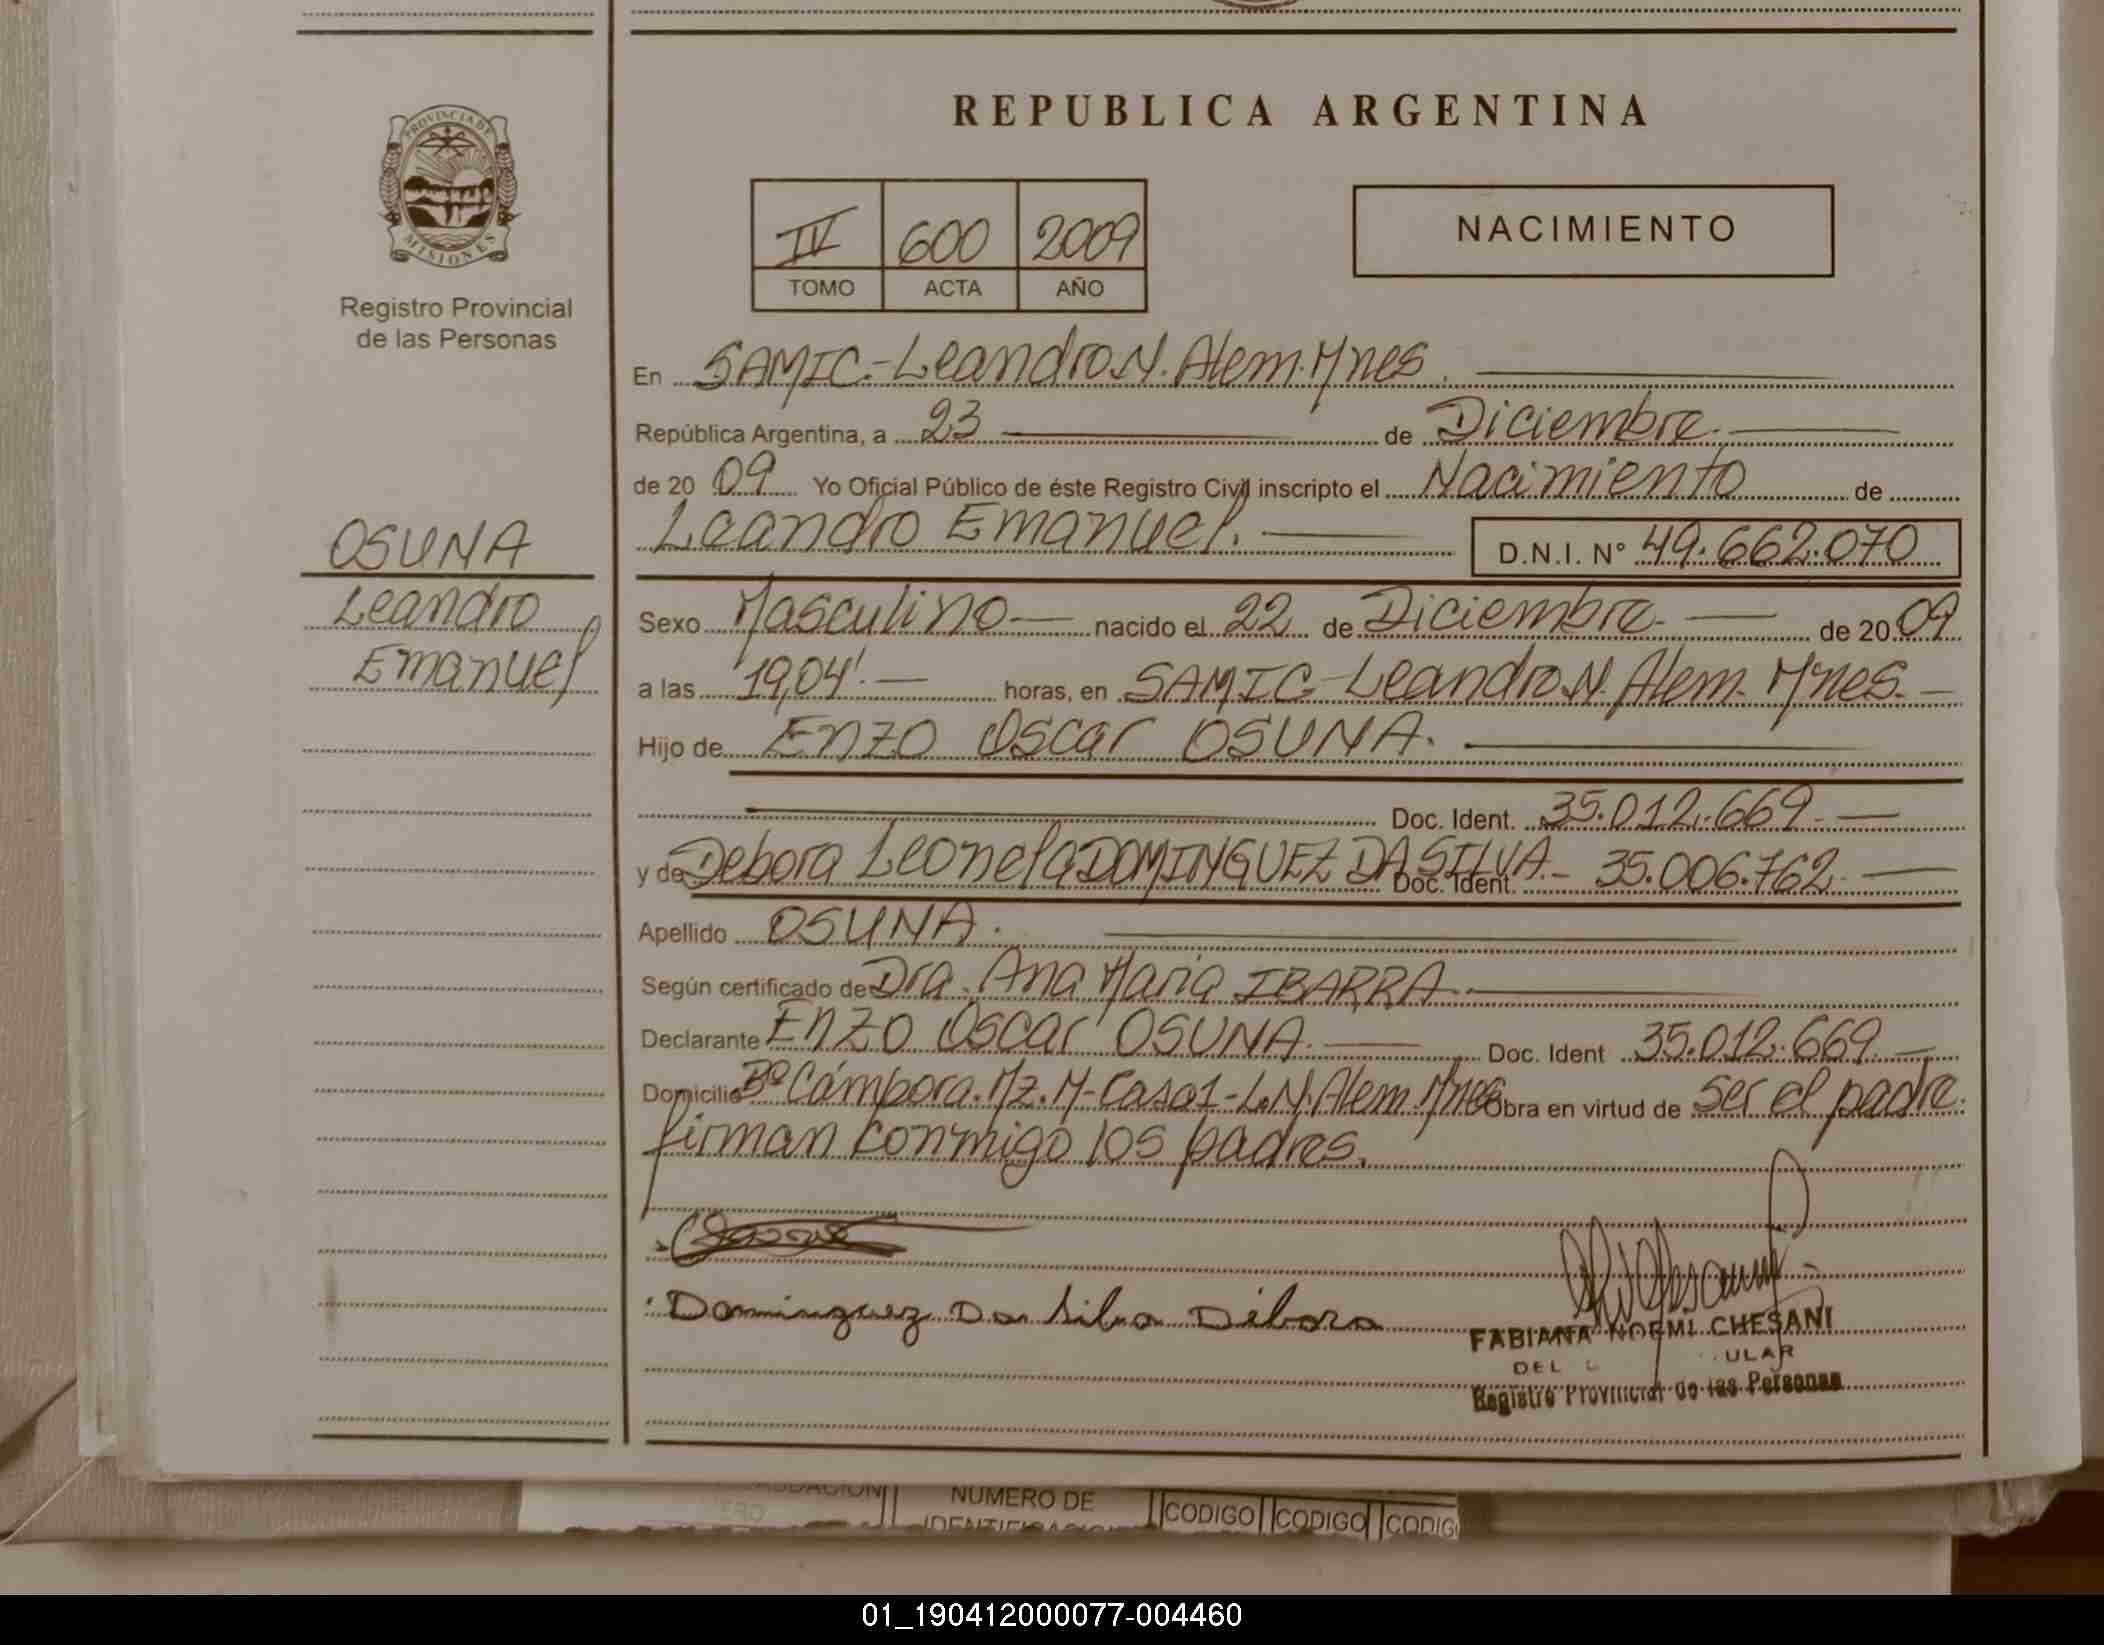 REPUBLICA ARGENTINA
PROVINCIA DE
MISIONES
Registro Provincial
de las Personas
IV 600 2009
TOMO ACTA AÑO
NACIMIENTO
En SAMIC.-Leandro N. Alem. Mnes.
República Argentina, a 23 de Diciembre.
de 20 09 Yo Oficial Público de éste Registro Civil inscripto el Nacimiento de
Leandro Emanuel. D.N.I. N° 49.662.070
OSUNA
Leandro
Emanuel
Sexo Masculino nacido el 22 de Diciembre. de 20 09
a las 19,04'. horas, en SAMIC-Leandro N. Alem. Mnes.
Hijo de Enzo Oscar OSUNA.
Doc. Ident. 35.012.669.
y de Debora Leonela DOMINGUEZ DA SILVA.- Doc. Ident. 35.006.762.
Apellido OSUNA.
Según certificado de Dra. Ana Maria IBARRA.
Declarante Enzo Oscar OSUNA. Doc. Ident 35.012.669.
Domicilio B° Cámpora. Mz. M-Casa 1-L.N. Alem. Mnes Obra en virtud de ser el padre.
firman conmigo los padres.
Dominguez Da Silva Débora
FABIANA NOEMI CHESANI
Registro Provincial de las Personas
NUMERO DE
CODIGO CODIGO
01_190412000077-004460